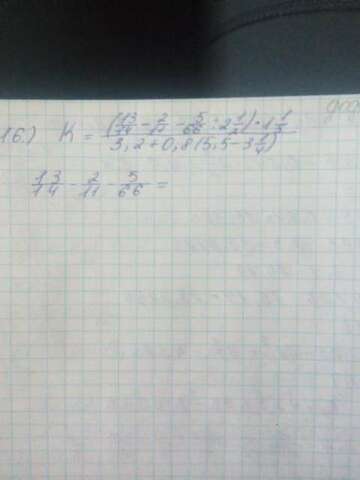 16.) K = (13/14 - 2/11 - 5/66 : 2 1/2) · 1 1/5 / 3,2 + 0,8 (5,5 - 3 1/4)
13/14 - 2/11 - 5/66 =